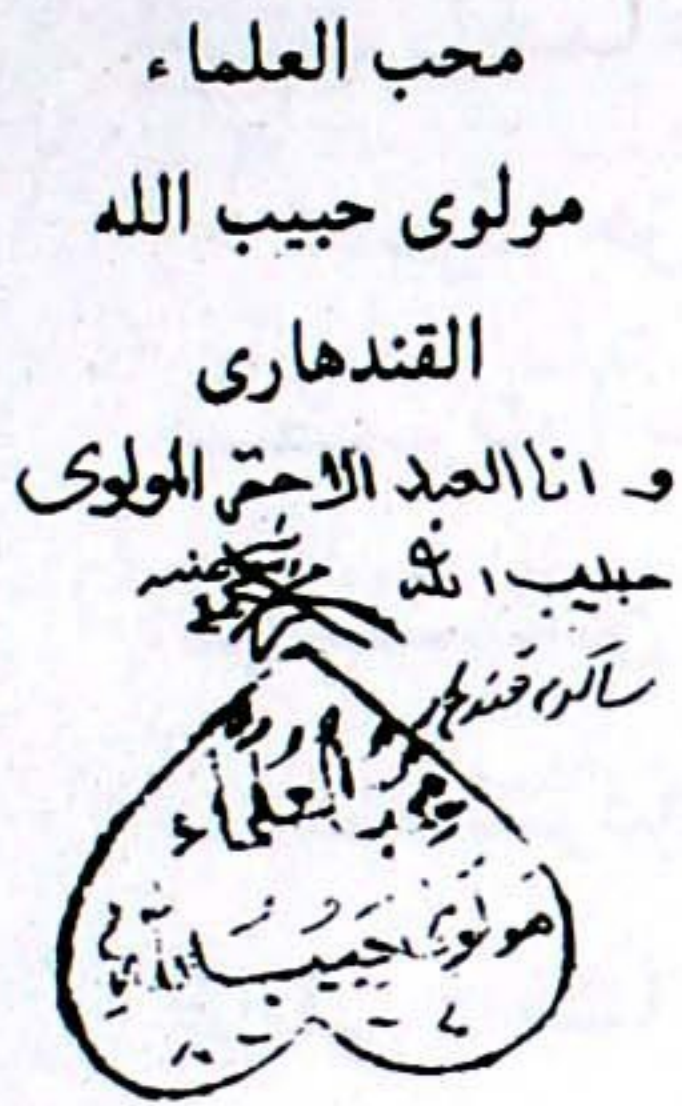 محب العلماء
مولوى حبيب الله
القندهارى
و انا العبد الاحقر المولوى
حبيب الله عفى عنه
ساكن قندهار
العلماء
مولوى حبيب الله